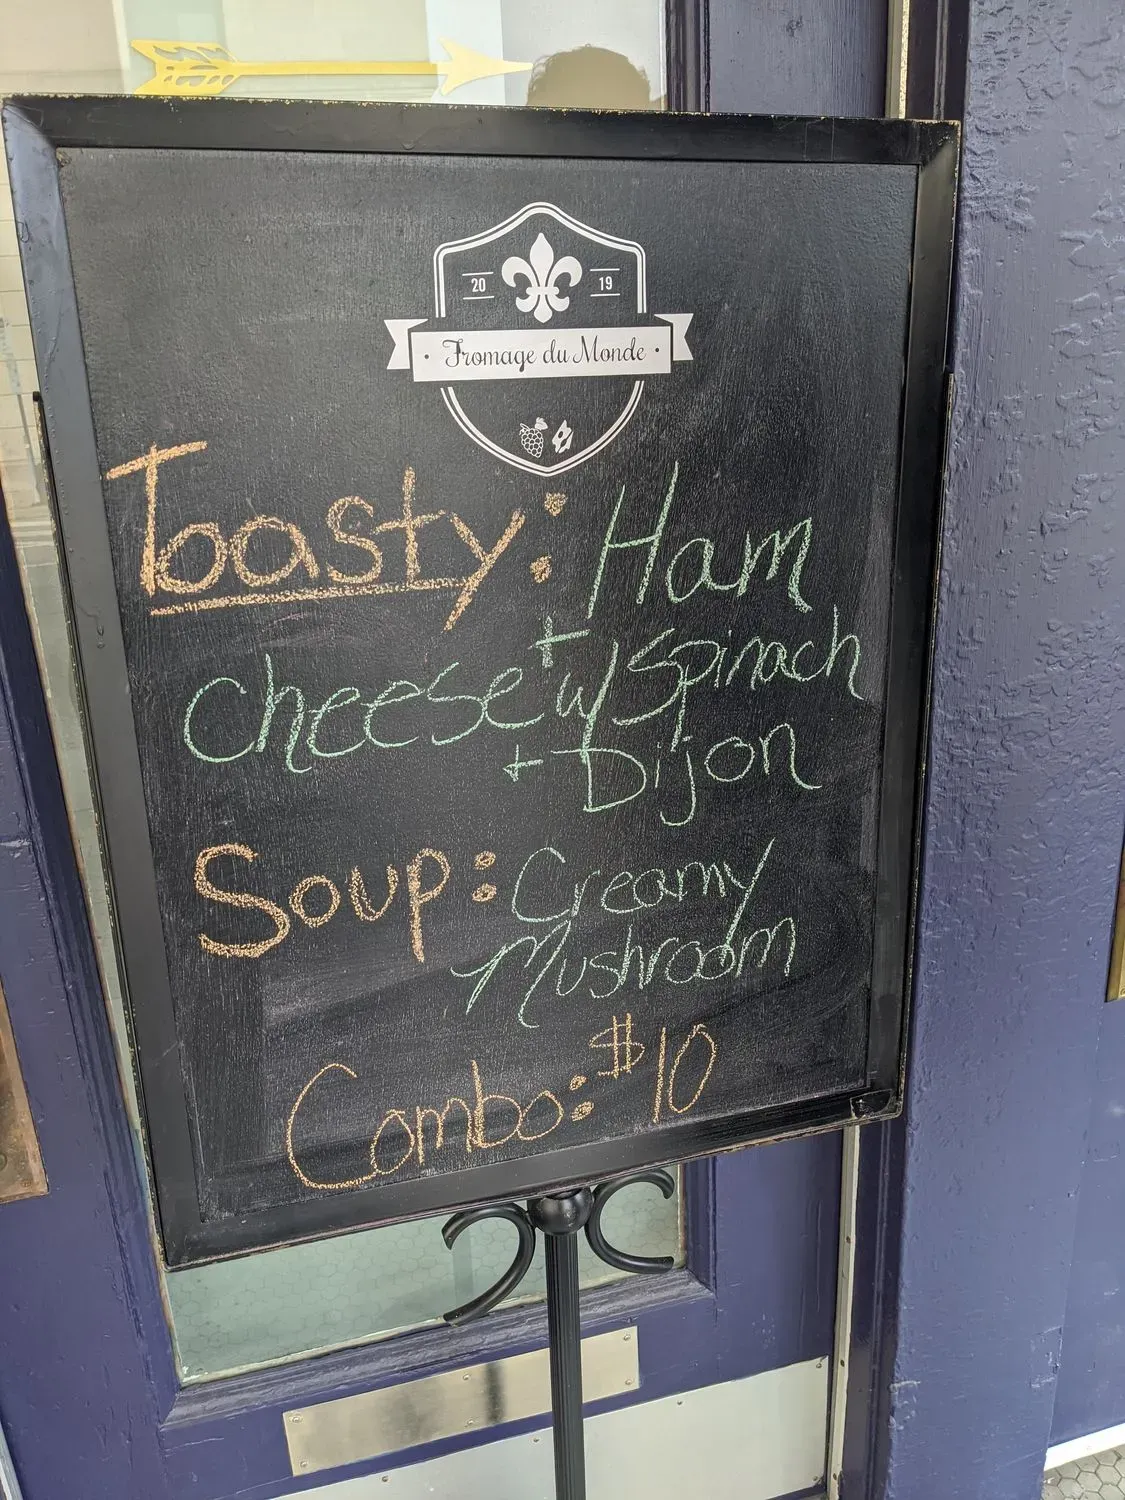 20 19
· Fromage du Monde ·
Toasty: Ham
+
cheese w/ Spinach
+ Dijon
Soup: Creamy
Mushroom
Combo: $10